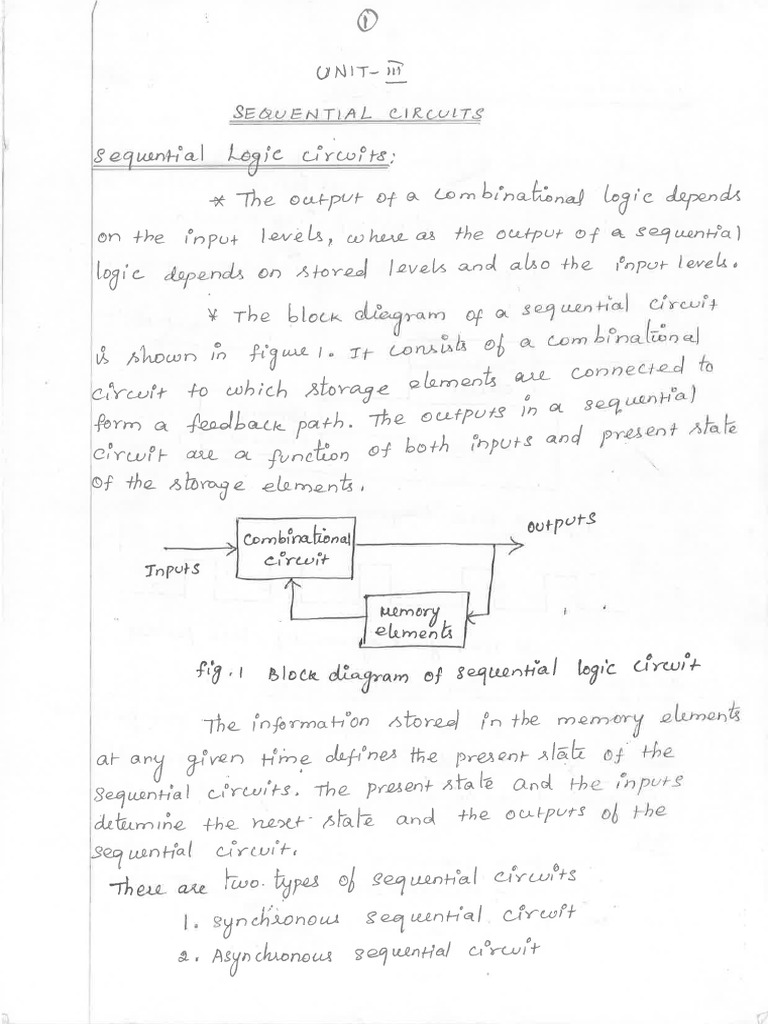 1
UNIT-III
SEQUENTIAL CIRCUITS
Sequential Logic circuits:
* The output of a combinational logic depends
on the input levels, where as the output of a sequential
logic depends on stored levels and also the input levels.
* The block diagram of a sequential circuit
is shown in figure 1. It consists of a combinational
circuit to which storage elements are connected to
form a feedback path. The outputs in a sequential
circuit are a function of both inputs and present state
of the storage elements.
Inputs
Combinational
circuit
outputs
Memory
elements
fig.1 Block diagram of sequential logic circuit
The information stored in the memory elements
at any given time defines the present state of the
sequential circuits. The present state and the inputs
determine the next state and the outputs of the
sequential circuit.
There are two types of sequential circuits
1. Synchronous sequential circuit
2. Asynchronous sequential circuit